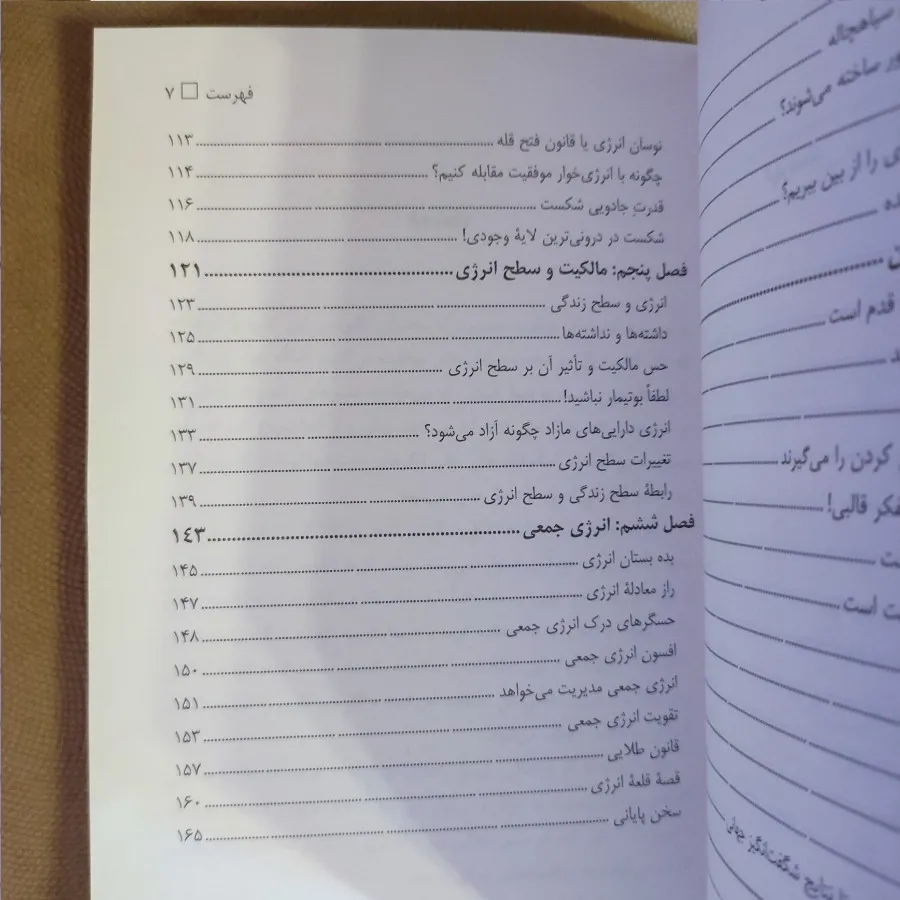 فهرست □ ۷
نوسان انرژی یا قانون فتح قله ........ ۱۱۳
چگونه با انرژی‌خوار موفقیت مقابله کنیم؟ ........ ۱۱۴
قدرتِ جادویی شکست ........ ۱۱۶
شکست در درونی‌ترین لایهٔ وجودی! ........ ۱۱۸
فصل پنجم: مالکیت و سطح انرژی ........ ۱۲۱
انرژی و سطح زندگی ........ ۱۲۳
داشته‌ها و نداشته‌ها ........ ۱۲۵
حس مالکیت و تأثیر آن بر سطح انرژی ........ ۱۲۹
لطفاً بوتیمار نباشید! ........ ۱۳۱
انرژی دارایی‌های مازاد چگونه آزاد می‌شود؟ ........ ۱۳۳
تغییرات سطح انرژی ........ ۱۳۷
رابطهٔ سطح زندگی و سطح انرژی ........ ۱۳۹
فصل ششم: انرژی جمعی ........ ۱۴۳
بده بستان انرژی ........ ۱۴۵
راز معادلهٔ انرژی ........ ۱۴۷
حسگرهای درک انرژی جمعی ........ ۱۴۸
افسون انرژی جمعی ........ ۱۵۰
انرژی جمعی مدیریت می‌خواهد ........ ۱۵۱
تقویت انرژی جمعی ........ ۱۵۳
قانون طلایی ........ ۱۵۷
قصهٔ قلعهٔ انرژی ........ ۱۶۰
سخن پایانی ........ ۱۶۵
سیاهچاله
ساخته می‌شوند؟
را از بین ببریم؟
قدم است
کردن را می‌گیرند
قالبی!
است
شگفت‌انگیز جهانی